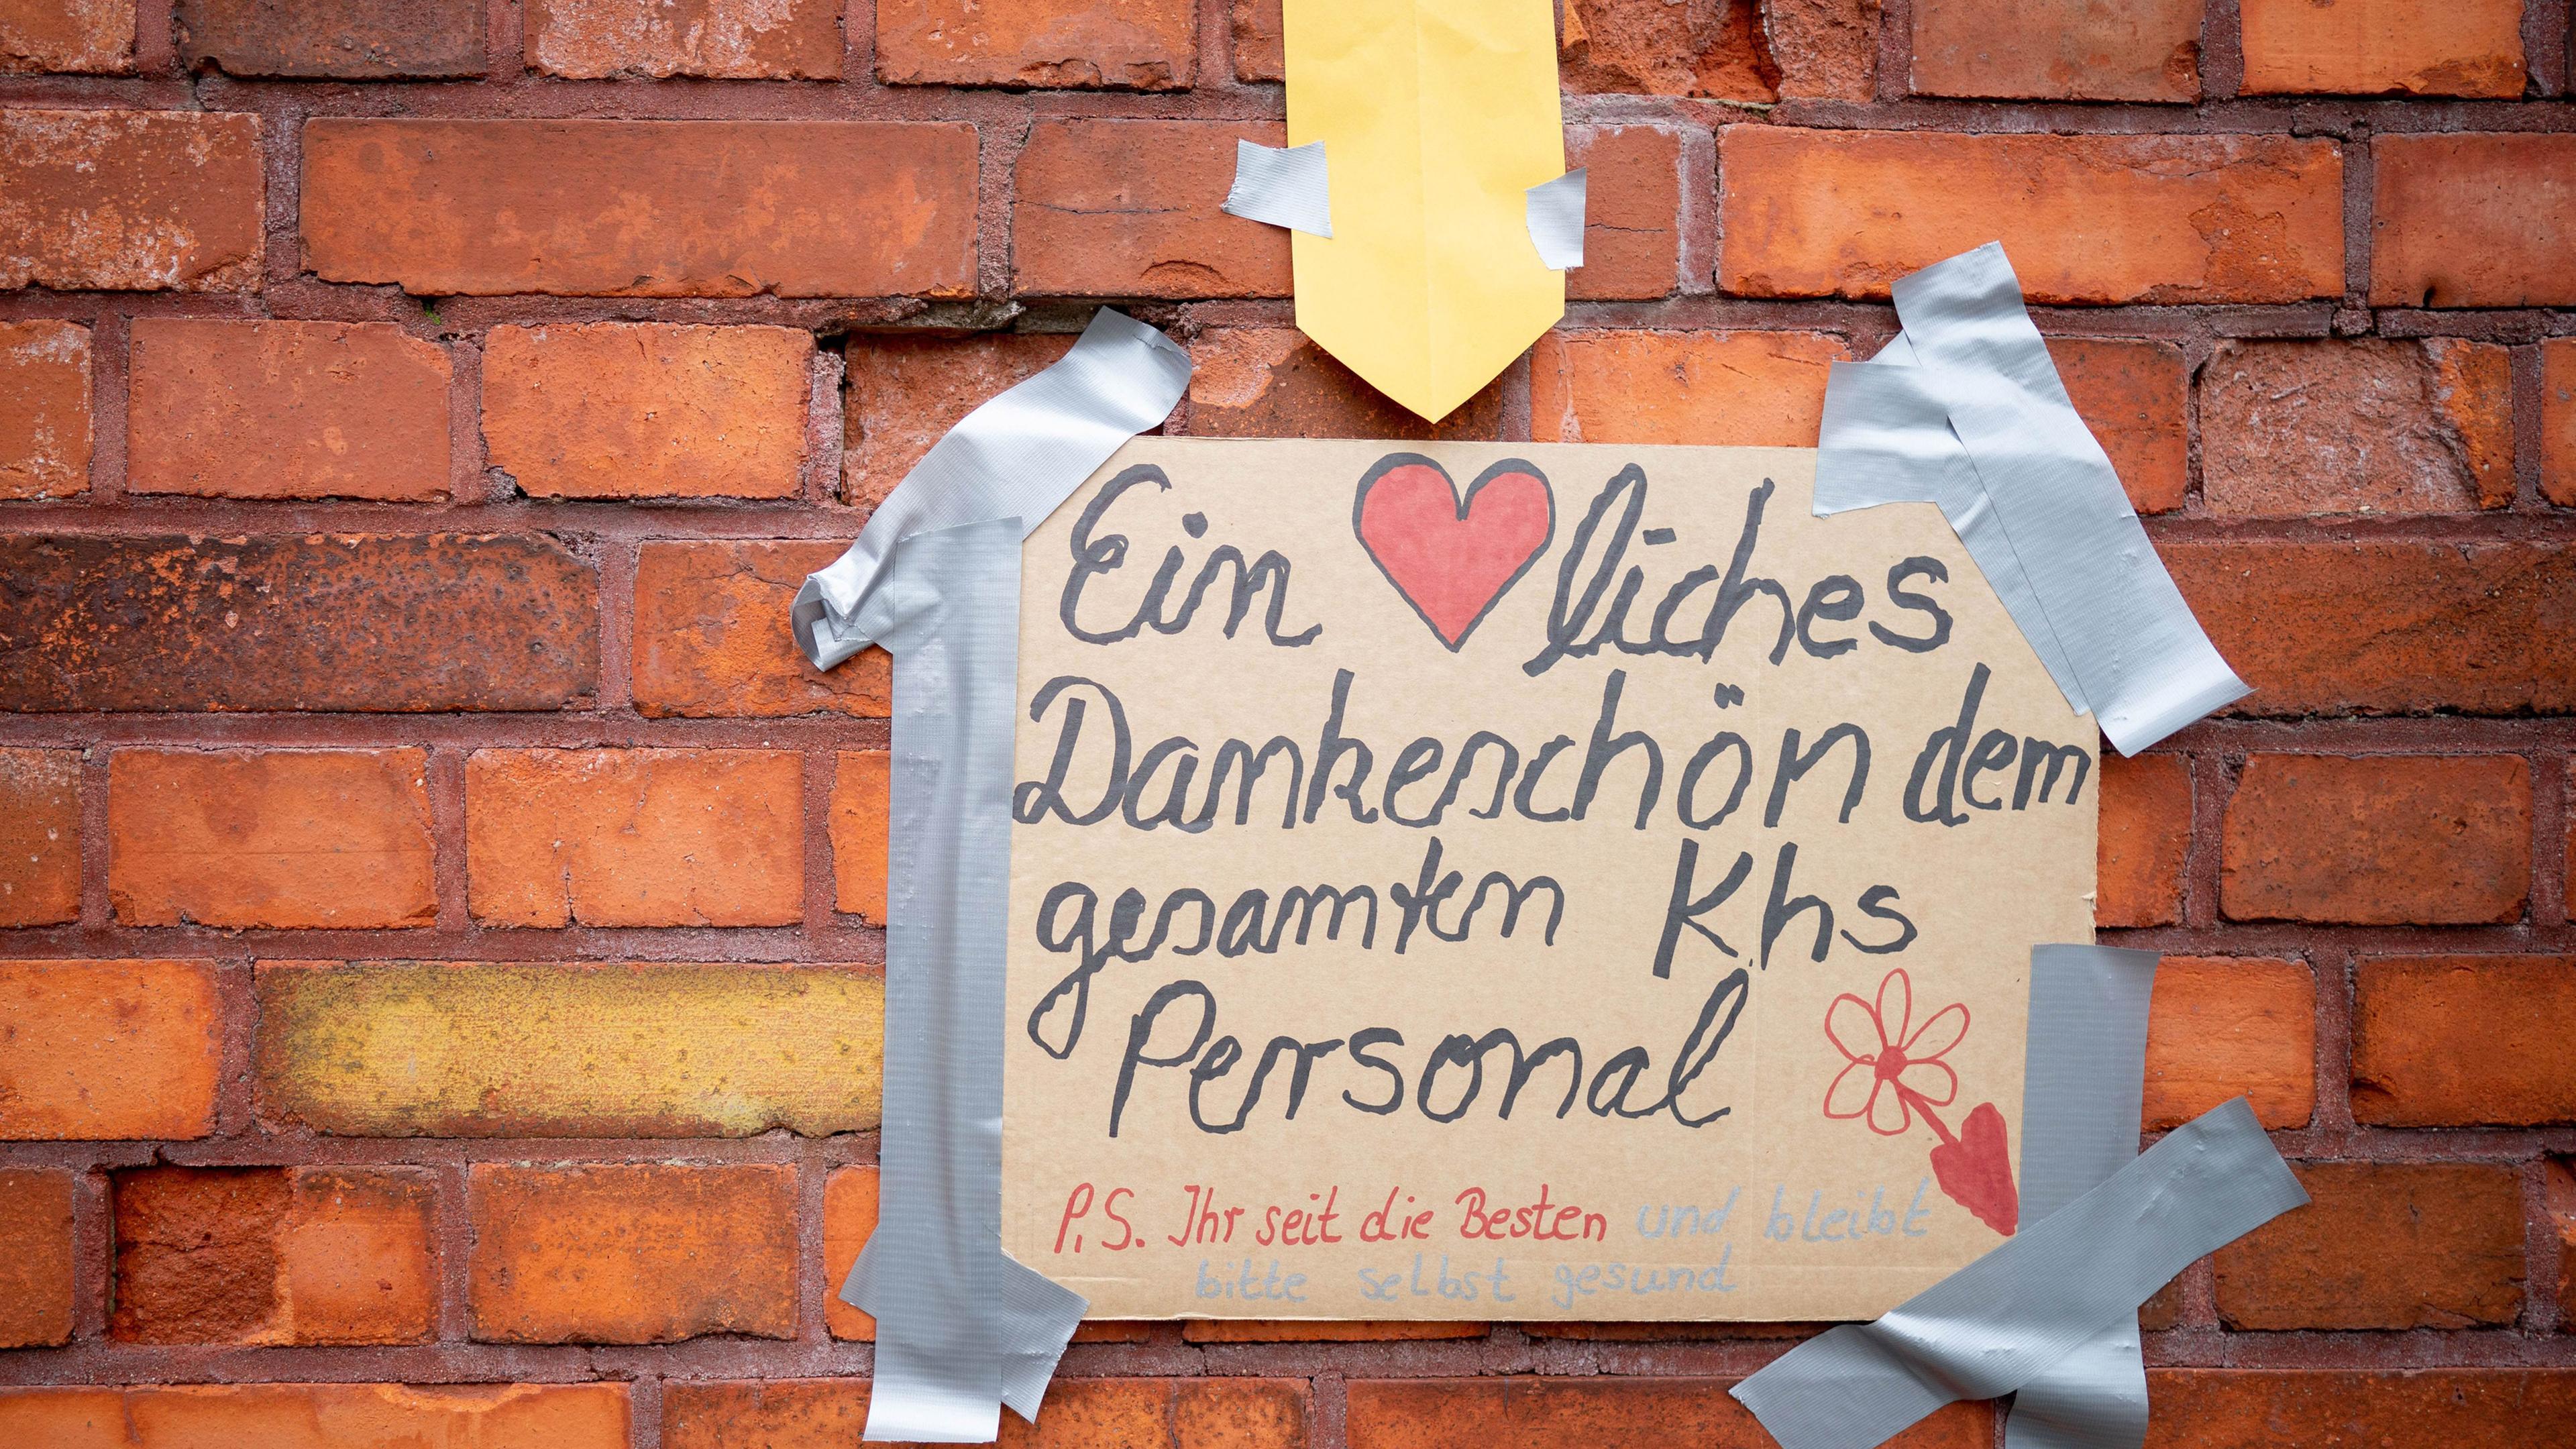 Ein ❤liches
Dankeschön dem
gesamten Khs
Personal
P.S. Ihr seit die Besten und bleibt
bitte selbst gesund